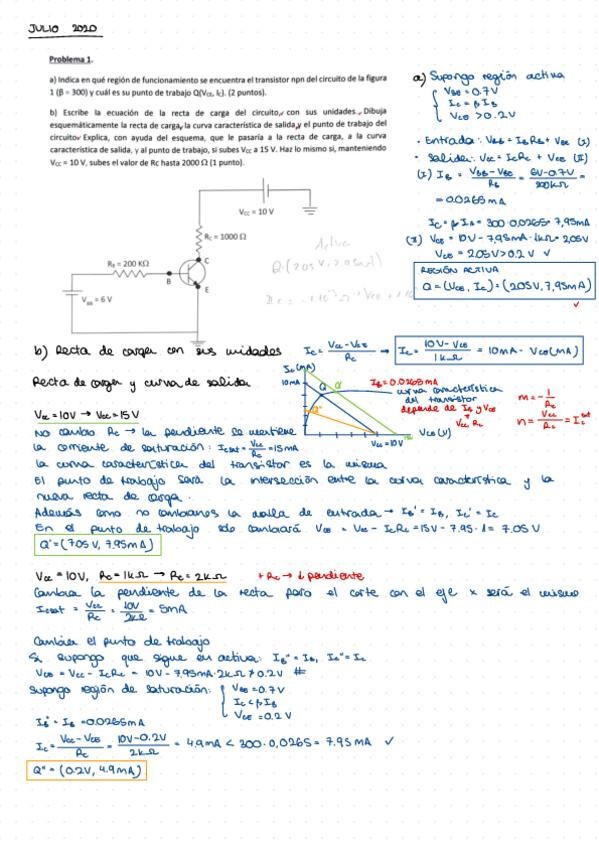 JULIO 2020
Problema 1.
a) Indica en qué región de funcionamiento se encuentra el transistor npn del circuito de la figura
1 (β = 300) y cuál es su punto de trabajo Q(VCE, IC). (2 puntos).
b) Escribe la ecuación de la recta de carga del circuito, con sus unidades. Dibuja
esquemáticamente la recta de carga, la curva característica de salida, y el punto de trabajo del
circuito. Explica, con ayuda del esquema, que le pasaría a la recta de carga, a la curva
característica de salida, y al punto de trabajo, si subes Vcc a 15 V. Haz lo mismo si, manteniendo
Vcc = 10 V, subes el valor de Rc hasta 2000 Ω (1 punto).
Vcc = 10 V
Rc = 1000 Ω
RB = 200 KΩ
C
B
E
VBB = 6 V
Activa
a) Supongo región activa
VBE = 0.7V
Ic = β IB
VCE > 0.2V
· Entrada: VBB = IB RB + VBE (I)
· Salida: Vcc = Ic Rc + VCE (II)
(I) IB = (VBB - VBE)/RB = (6V - 0.7V)/200kΩ =
= 0.0265 mA
Ic = β IB = 300 · 0,0265 = 7,95 mA
(II) VCE = 10V - 7,95mA · 1kΩ = 2,05V
VCE = 2.05V > 0.2V ✓
REGIÓN ACTIVA
Q = (VCE, Ic) = (2.05V, 7,95mA)
✓
b) Recta de carga con sus unidades
Ic = (Vcc - VCE)/Rc → Ic = (10V - VCE)/1kΩ = 10mA - VCE (mA)
Recta de carga y curva de salida
Ic (mA)
10mA
Q
Q'
Q''
IB = 0.0265mA
curva característica
del transistor
depende de IB y VCE
Vcc, Rc
Vcc = 10V
VCE (V)
m = -1/Rc
n = Vcc/Rc = Ic sat
Vcc = 10V → Vcc = 15V
No cambio Rc → la pendiente se mantiene
la corriente de saturación: Icsat = Vcc/Rc = 15mA
la curva característica del transistor es la misma
El punto de trabajo será la intersección entre la curva característica y la
nueva recta de carga.
Además como no cambiamos la malla de entrada → IB' = IB, Ic' = Ic
En el punto de trabajo solo cambiará VCE = Vcc - IcRc = 15V - 7.95 · 1 = 7.05 V
Q' = (7.05 V, 7.95mA)
Vcc = 10V, Rc = 1kΩ → Rc = 2kΩ
+ Rc → ↓ pendiente
Cambia la pendiente de la recta pero el corte con el eje x será el mismo
Icsat = Vcc/Rc = 10V/2kΩ = 5mA
Cambia el punto de trabajo
Si supongo que sigue en activa: IB'' = IB, Ic'' = Ic
VCE = Vcc - IcRc = 10V - 7.95mA · 2kΩ ≯ 0.2V #
Supongo región de saturación:
VBE = 0.7V
Ic < β IB
VCE = 0.2V
IB'' = IB = 0.0265mA
Ic = (Vcc - VCE)/Rc = (10V - 0.2V)/2kΩ = 4.9mA < 300 · 0,0265 = 7.95 mA ✓
Q'' = (0.2V, 4.9mA)